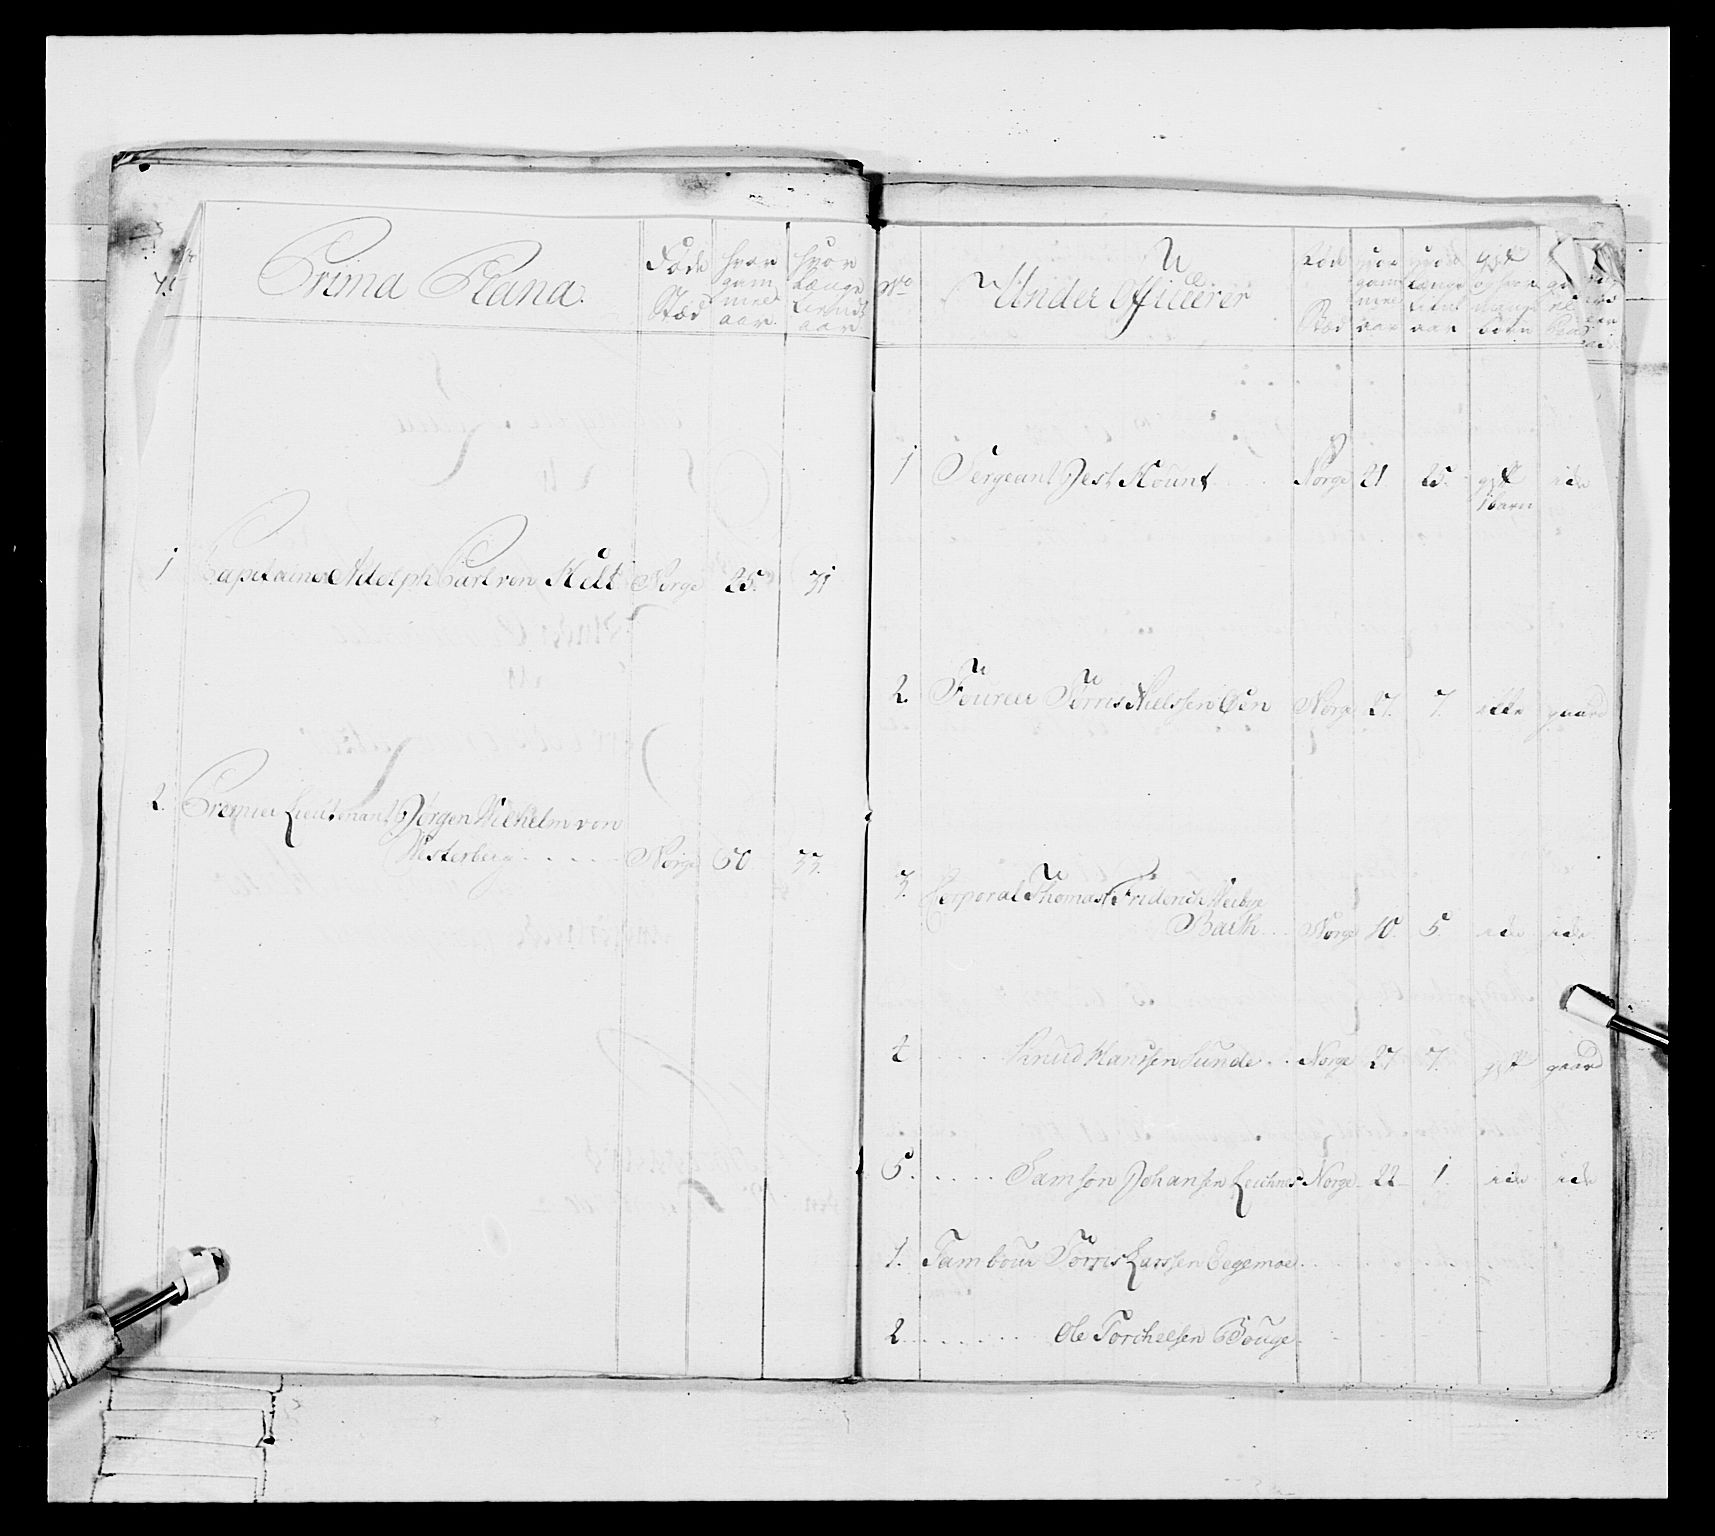 No Prima Plana. Føde Stæd hvor gam mel aar. hvor Længe tient aar
1 Capitaine Adolph Carl von Kelt Norge 25. 31
2. Premier Lieutenant Jørgen Wilhelm von
Westerberg . . . . . Norge 50 33.
No Under Officerer Føde Stæd hvor gam mel aar hvor længe tient aar gift og hvor mange børn
1 Sergeant Jest Kount . . . Norge 21. 25. gift ide
1 barn
2. Foureer Tørris Nielssen Øen Norge 27. 7. ikke gaard
3. Corporal Thomas Friderich Meibye
Barth . . Norge 40. 5. ide ide
4 . . . . Knud Hanssen Sunde . . Norge 27 7. gift gaard
5. . . . . . Samson Johansen Norge 22 1. ide ide
1. Tambour Tørris Larssen Eegemoe
2. . . . . . . Ole Torchelsen Bouge